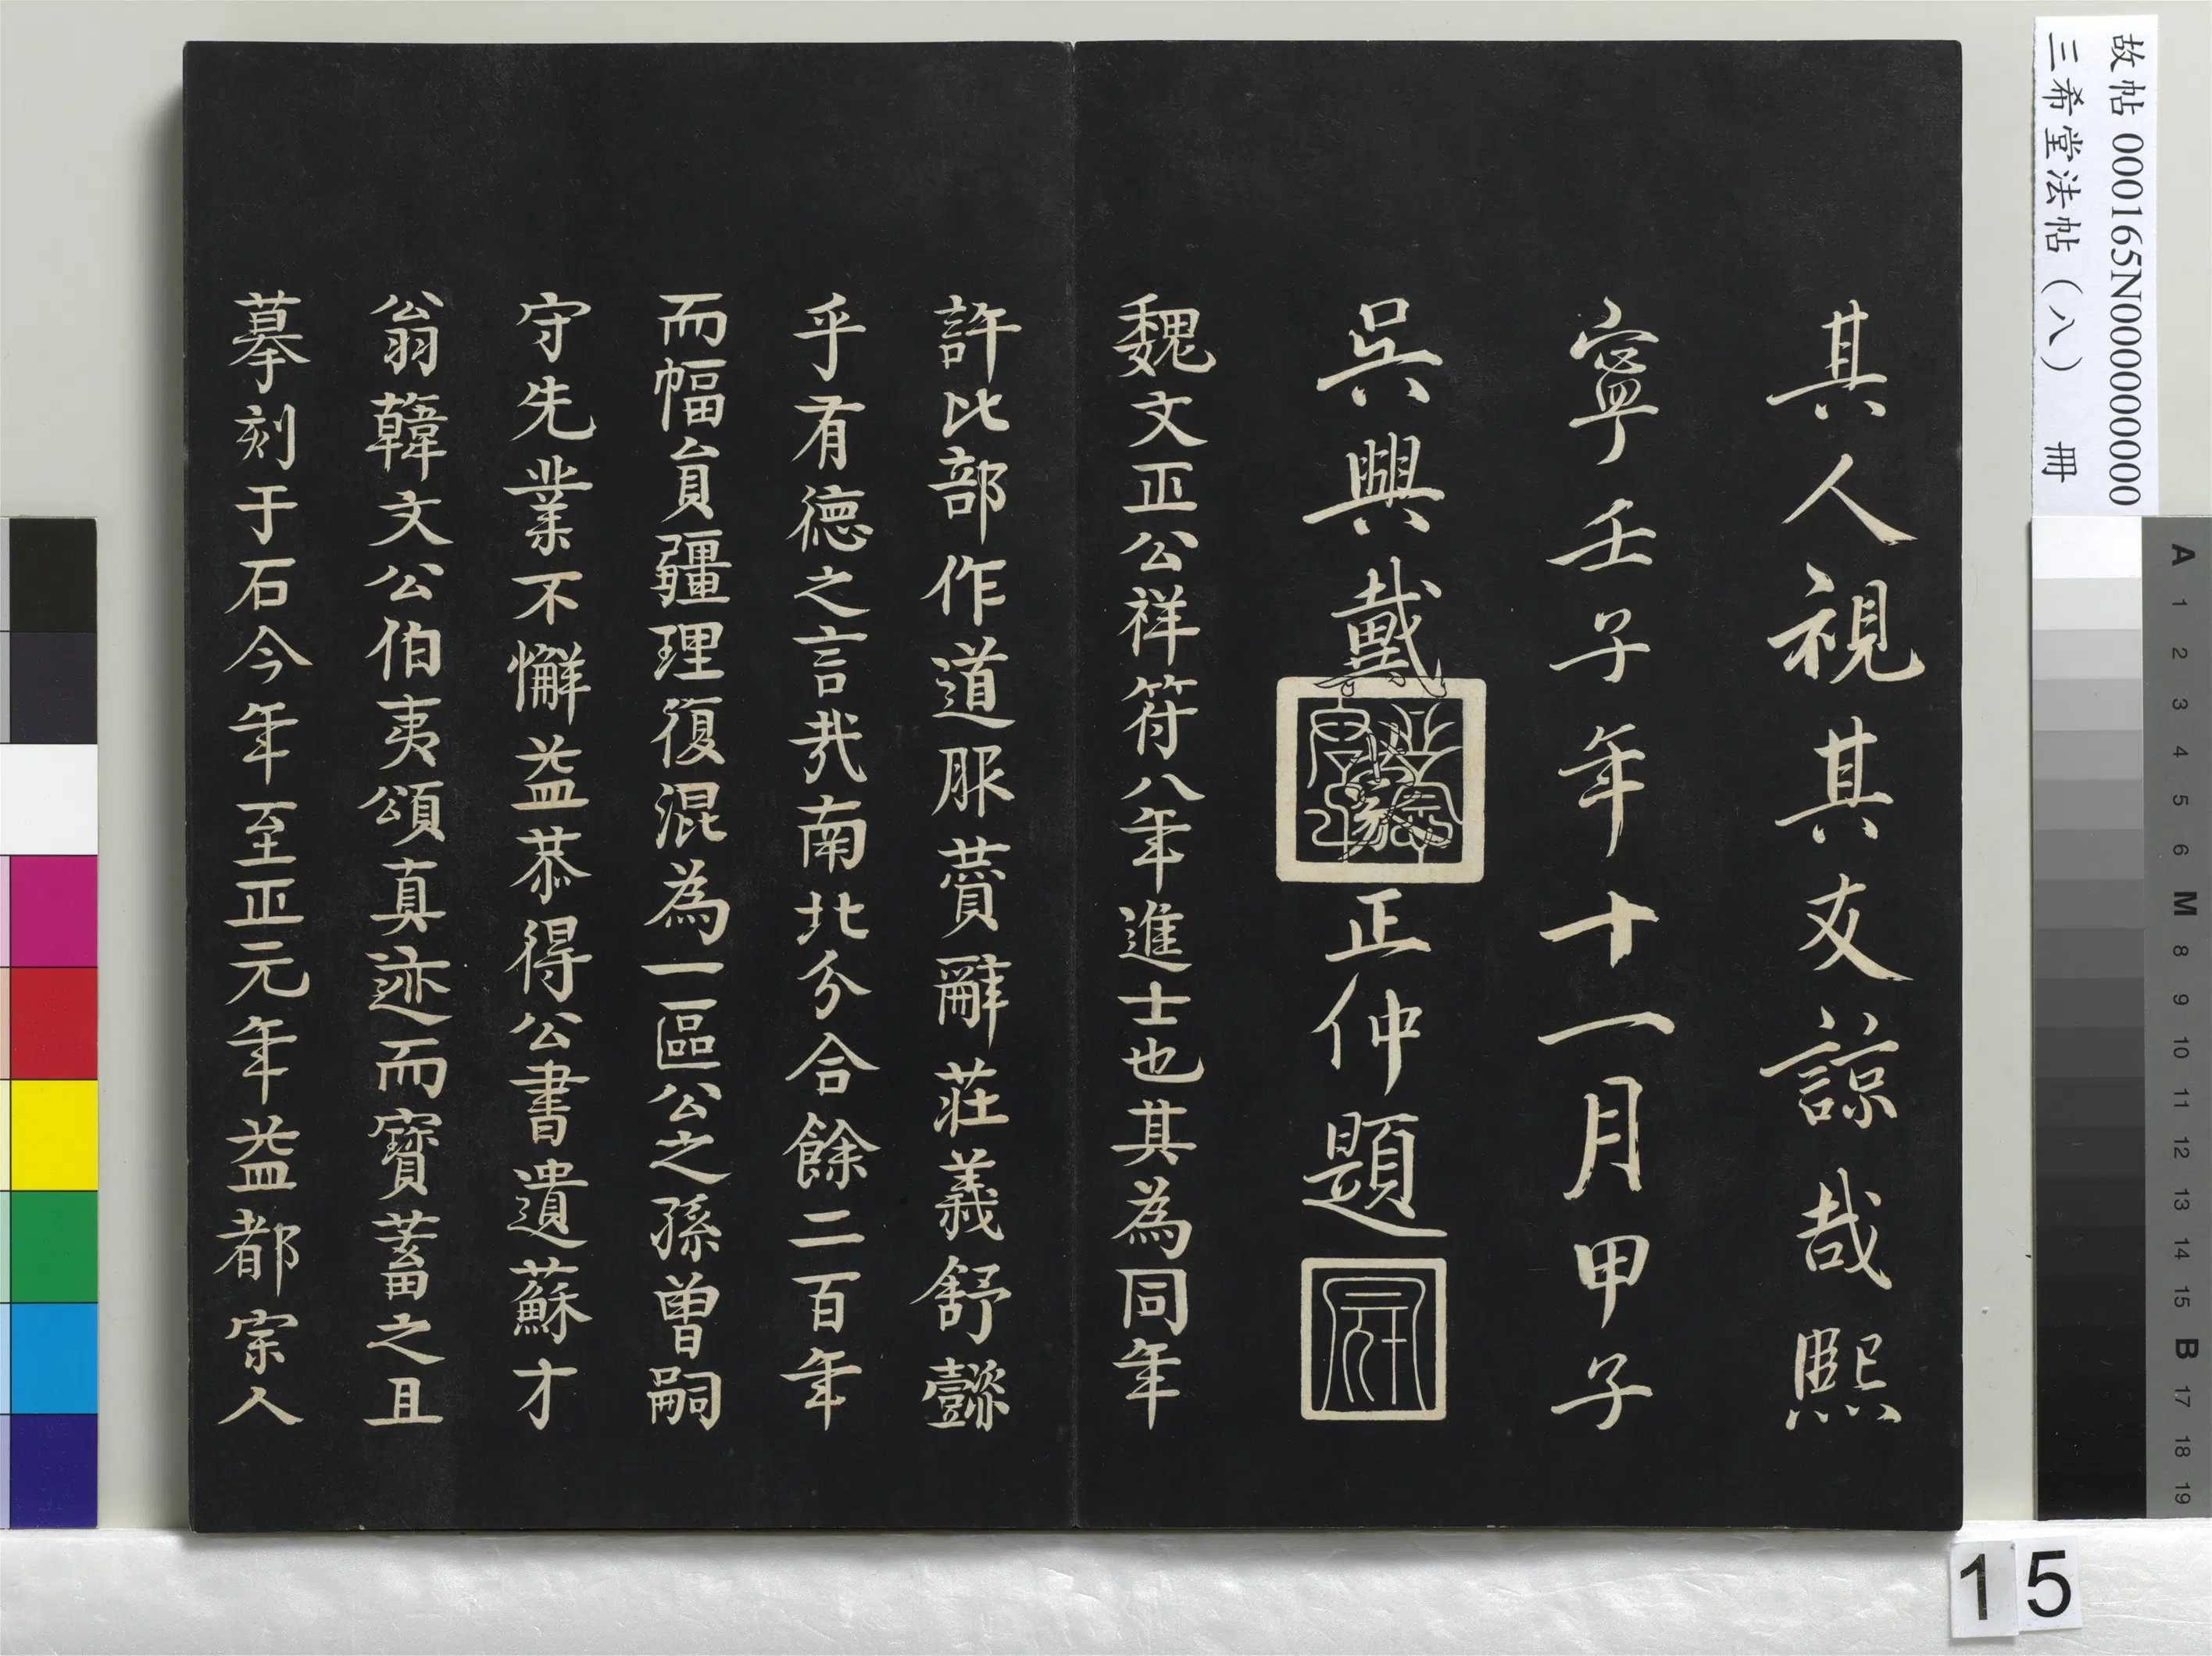 其人視其友諒哉熙
寧壬子年十一月甲子
吳興戴蒙正仲題
魏文正公祥符八年進士也其為同年
許比部作道服賛辭莊義舒懿
乎有德之言哉南北分合餘二百年
而幅員疆理復混為一區公之孫曾嗣
守先業不懈益恭得公書遺蘇才
翁韓文公伯夷頌真迹而寶蓄之且
摹刻于石今年至正元年益都宗人
故帖 000165N000000000
三希堂法帖(八) 冊
A 1 2 3 4 5 6 M 8 9 10 11 12 13 14 15 B 17 18 19
15